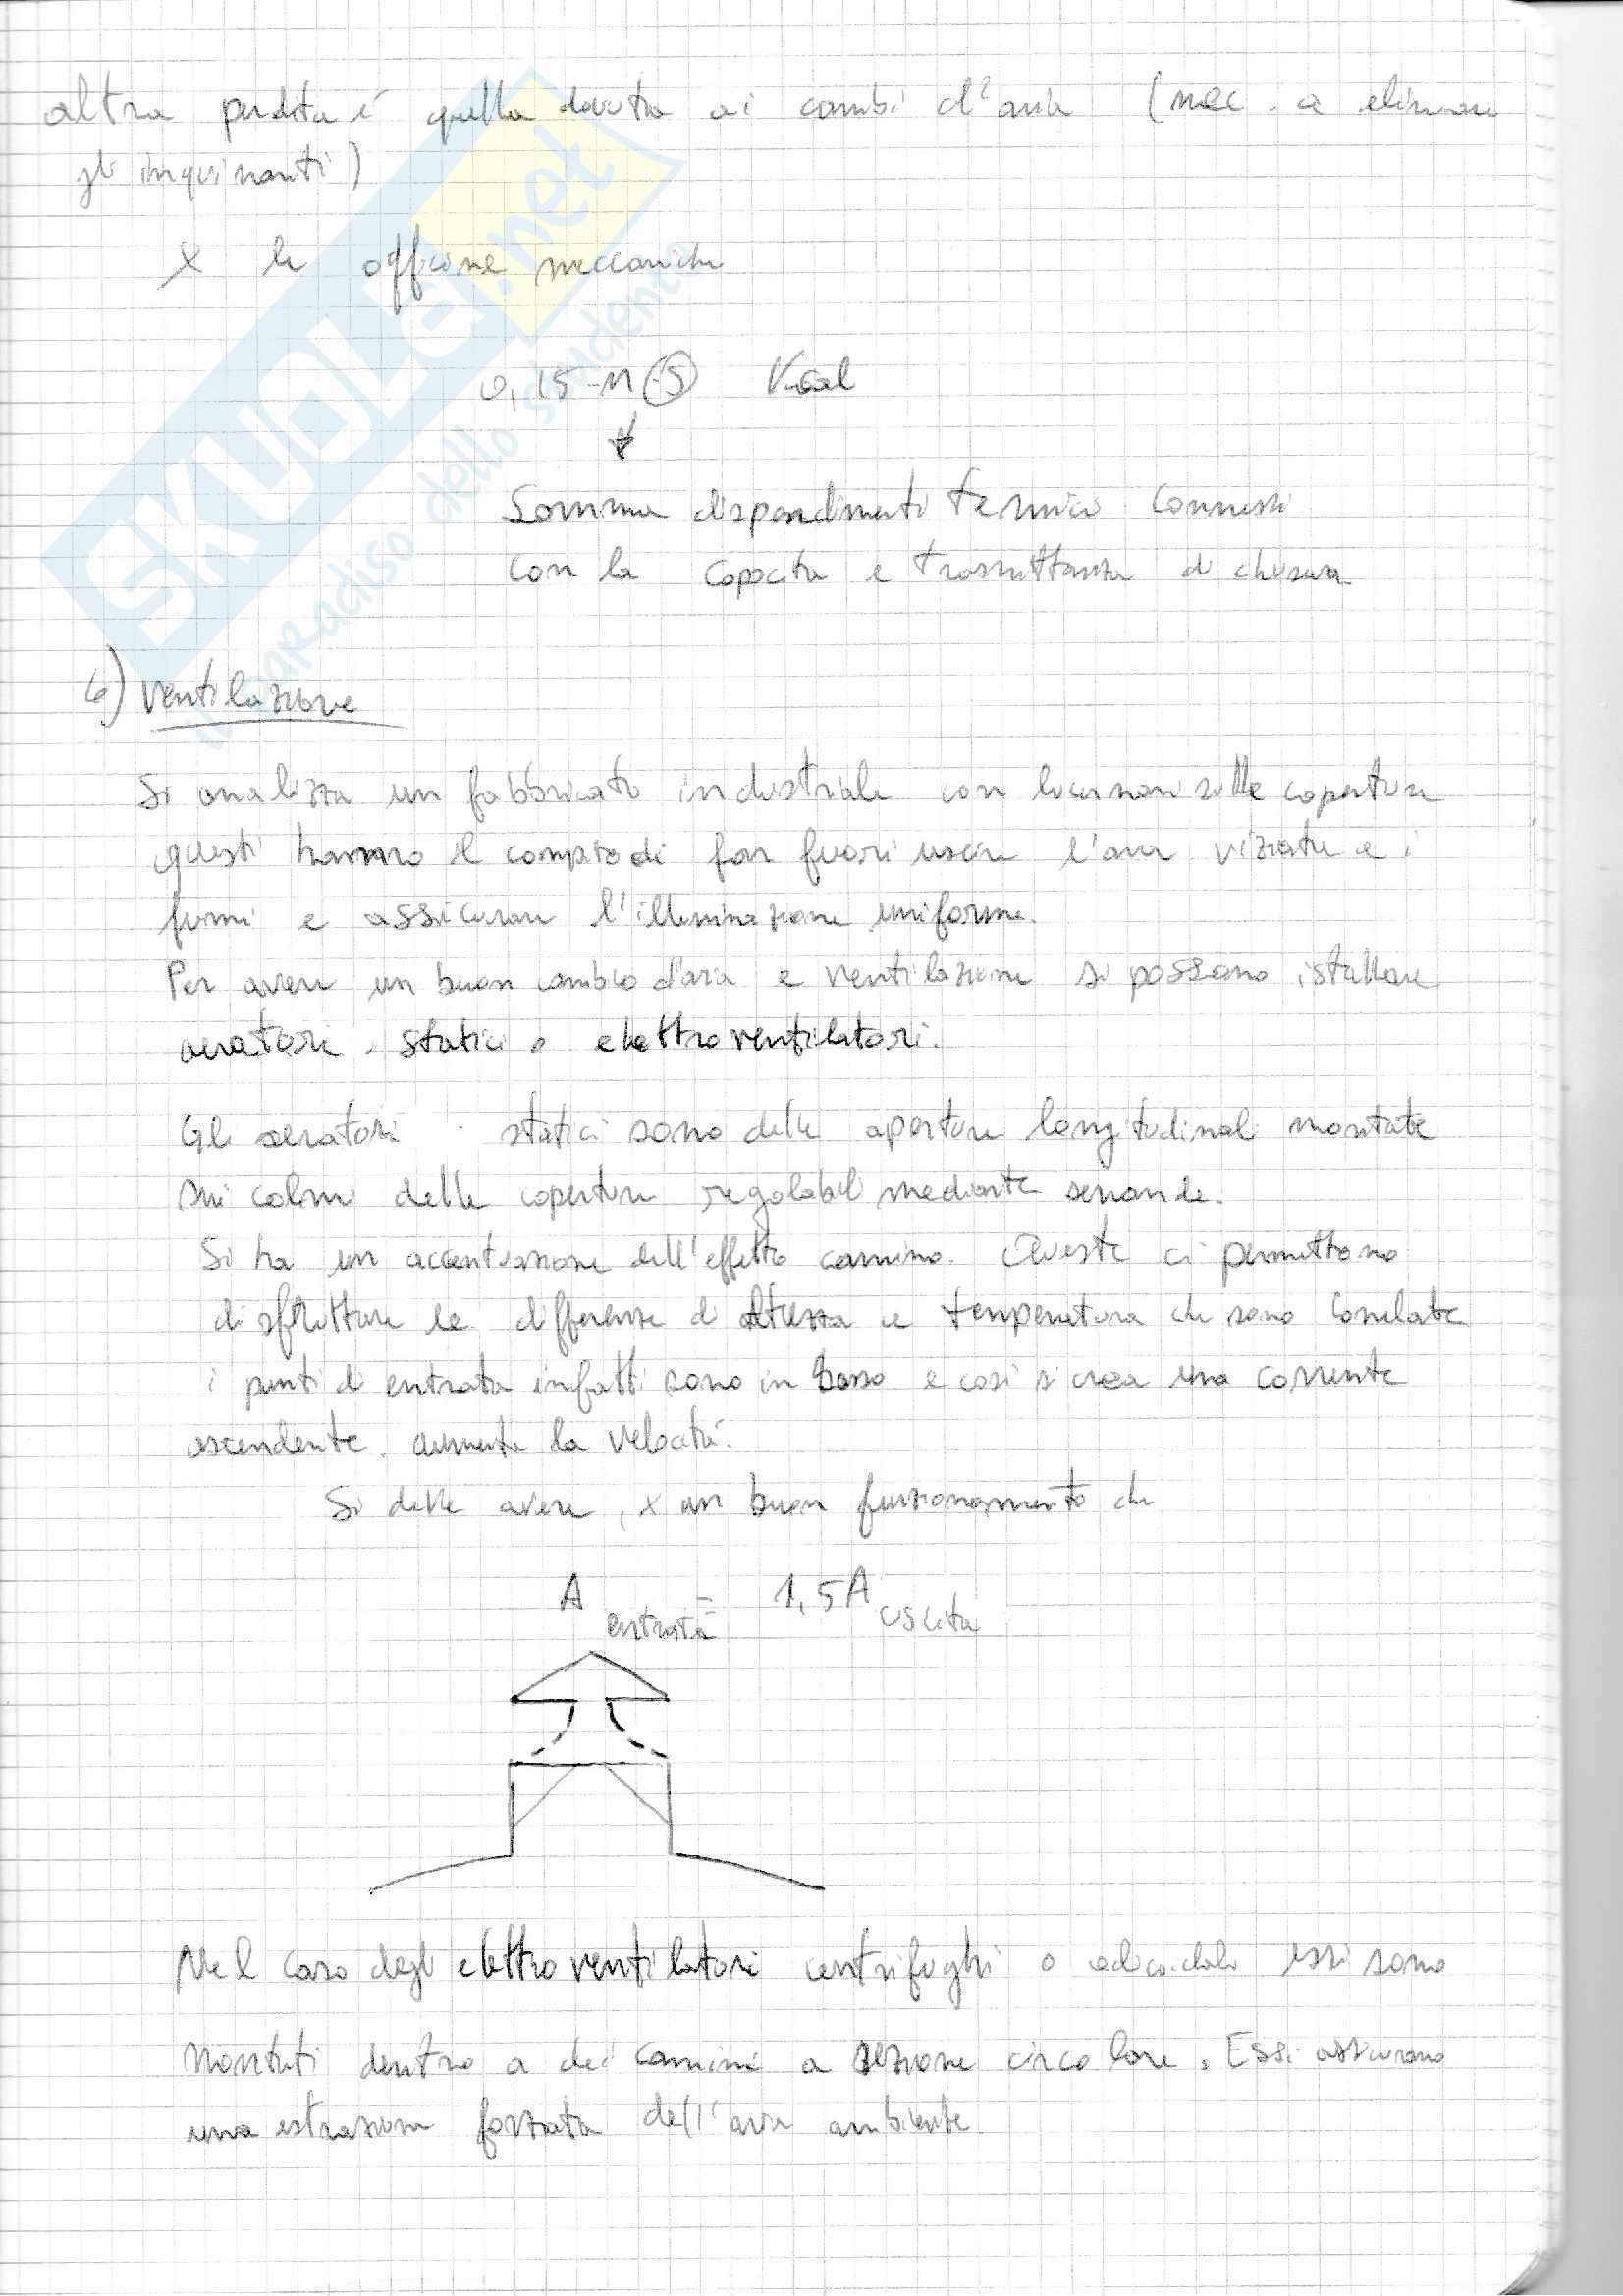 altra perdita é quella dovuta ai cambi d'aria (nec. a eliminare
gli inquinanti)
x le officine meccaniche
0,15 n S Kcal
Somma dispendimenti termici connessi
con la capacita e trasmittanza di chiusura
6) Ventilazione
Si analizza un fabbricato industriale con lucernari sulle coperture
questi hanno il compito di far fuori uscire l'aria viziata e i
fumi e assicurare l'illuminazione uniforme.
Per avere un buon cambio d'aria e ventilazione si possono istallare
aeratori statici o elettroventilatori.
Gli aeratori statici sono delle aperture longitudinali montate
sui colmi delle coperture regolabili mediante serrande.
Si ha un accentuazione dell'effetto camino. Queste ci permettono
di sfruttare le differenze di altezza e temperatura che sono correlate
i punti di entrata infatti sono in basso e così si crea una corrente
ascendente. aumenta la velocità.
Si deve avere, x un buon funzionamento che
A entrata = 1,5 A uscita
Nel caso degli elettroventilatori centrifughi o elicoidali essi sono
montati dentro a dei camini a sezione circolare. Essi assicurano
una estrazione forzata dell'aria ambiente.
SKUOLA.net
il paradiso dello studente